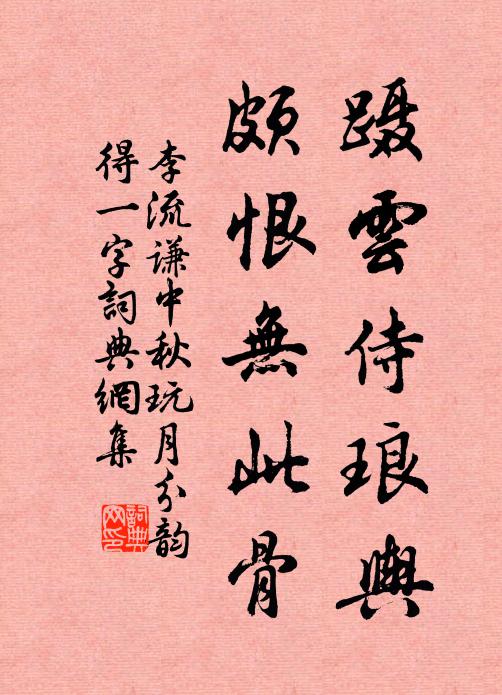 躡雲侍琅輿
頗恨無此骨
李流谦中秋玩月分韵
得一字詞典網集
詞典
网印